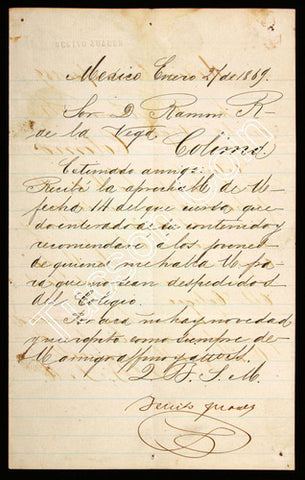 Mexico Enero 27 de 1869.
Sor. D. Ramon R.
de la Vega
Colima.
Estimado amigo:
Recibí la apreciable de U
fecha 14 del que cursa que
do enterado de su contenido y
recomendaré a los jovenes
de quienes me habla U pa
ra que no sean despedidos
del Colegio.
Por acá no hay novedad
y me repito como siempre de
U amigo affmo y atto S.
Q. B. S. M.
Benito Juarez